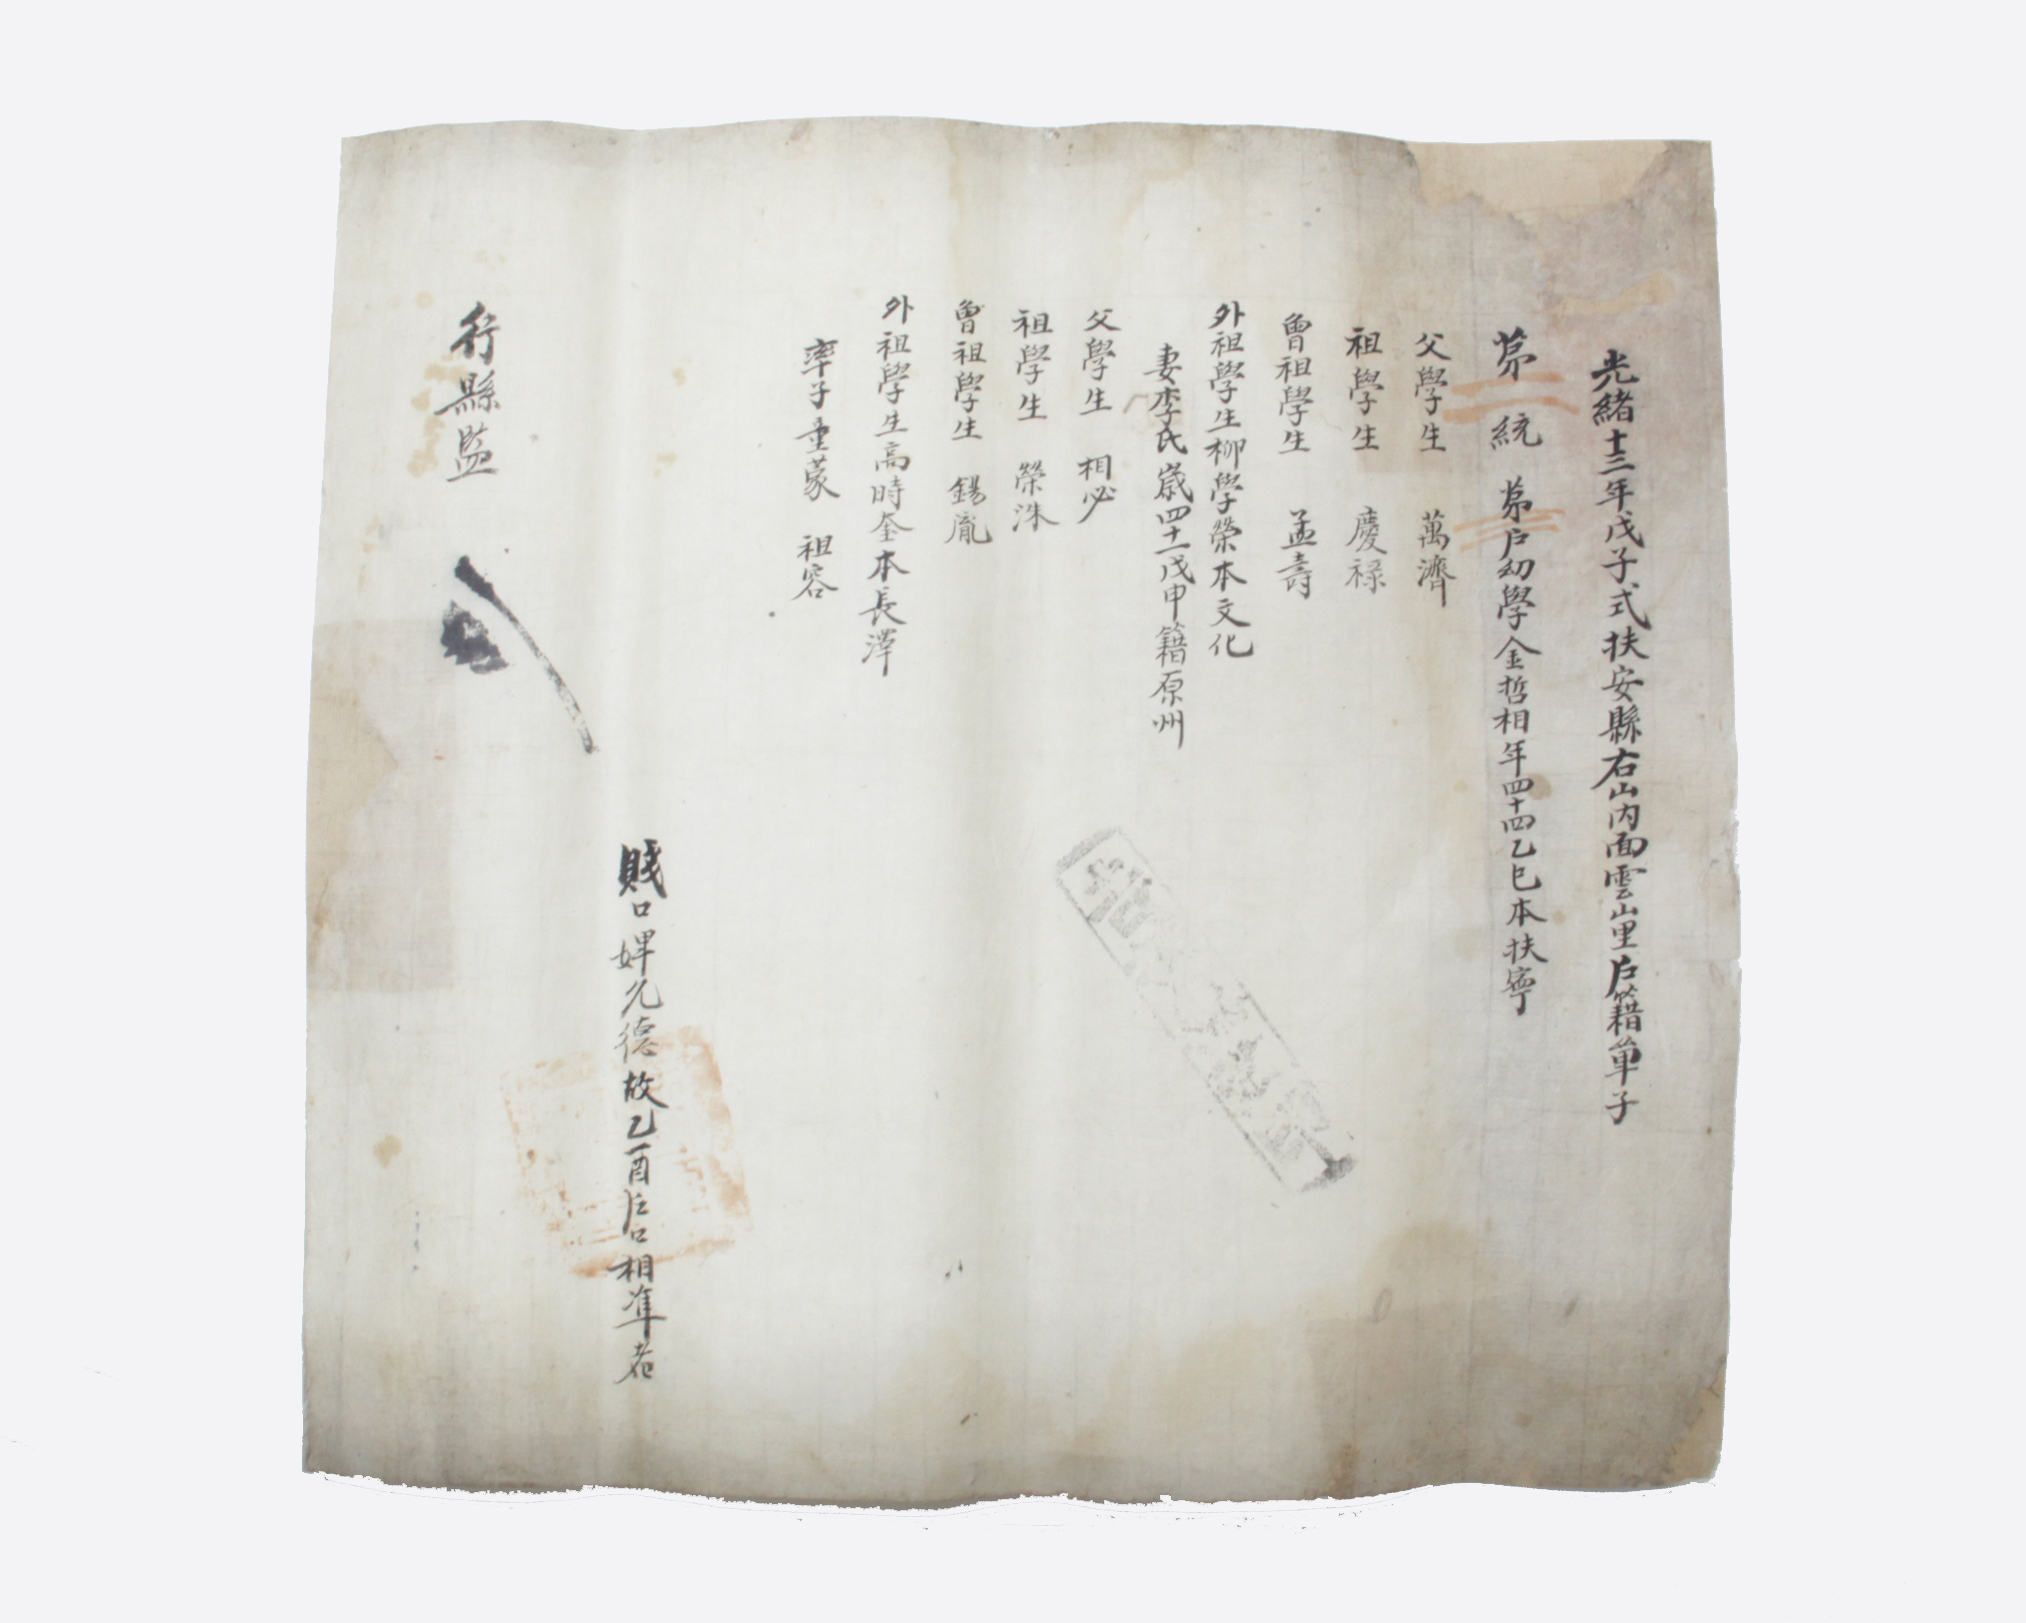 光緒十三年戊子式扶安縣右山內面雲山里戶籍單子
苐二統 苐三戶幼學金哲相年四十四乙巳本扶寧
父學生 萬濟
祖學生 慶祿
曾祖學生 孟壽
外祖學生柳學榮本文化
妻李氏歲四十一戊申籍原州
父學生 相必
祖學生 榮洙
曾祖學生 錫胤
外祖學生高時奎本長澤
率子童蒙 祖容
賤口婢允德故乙酉戶口相準者
行縣監